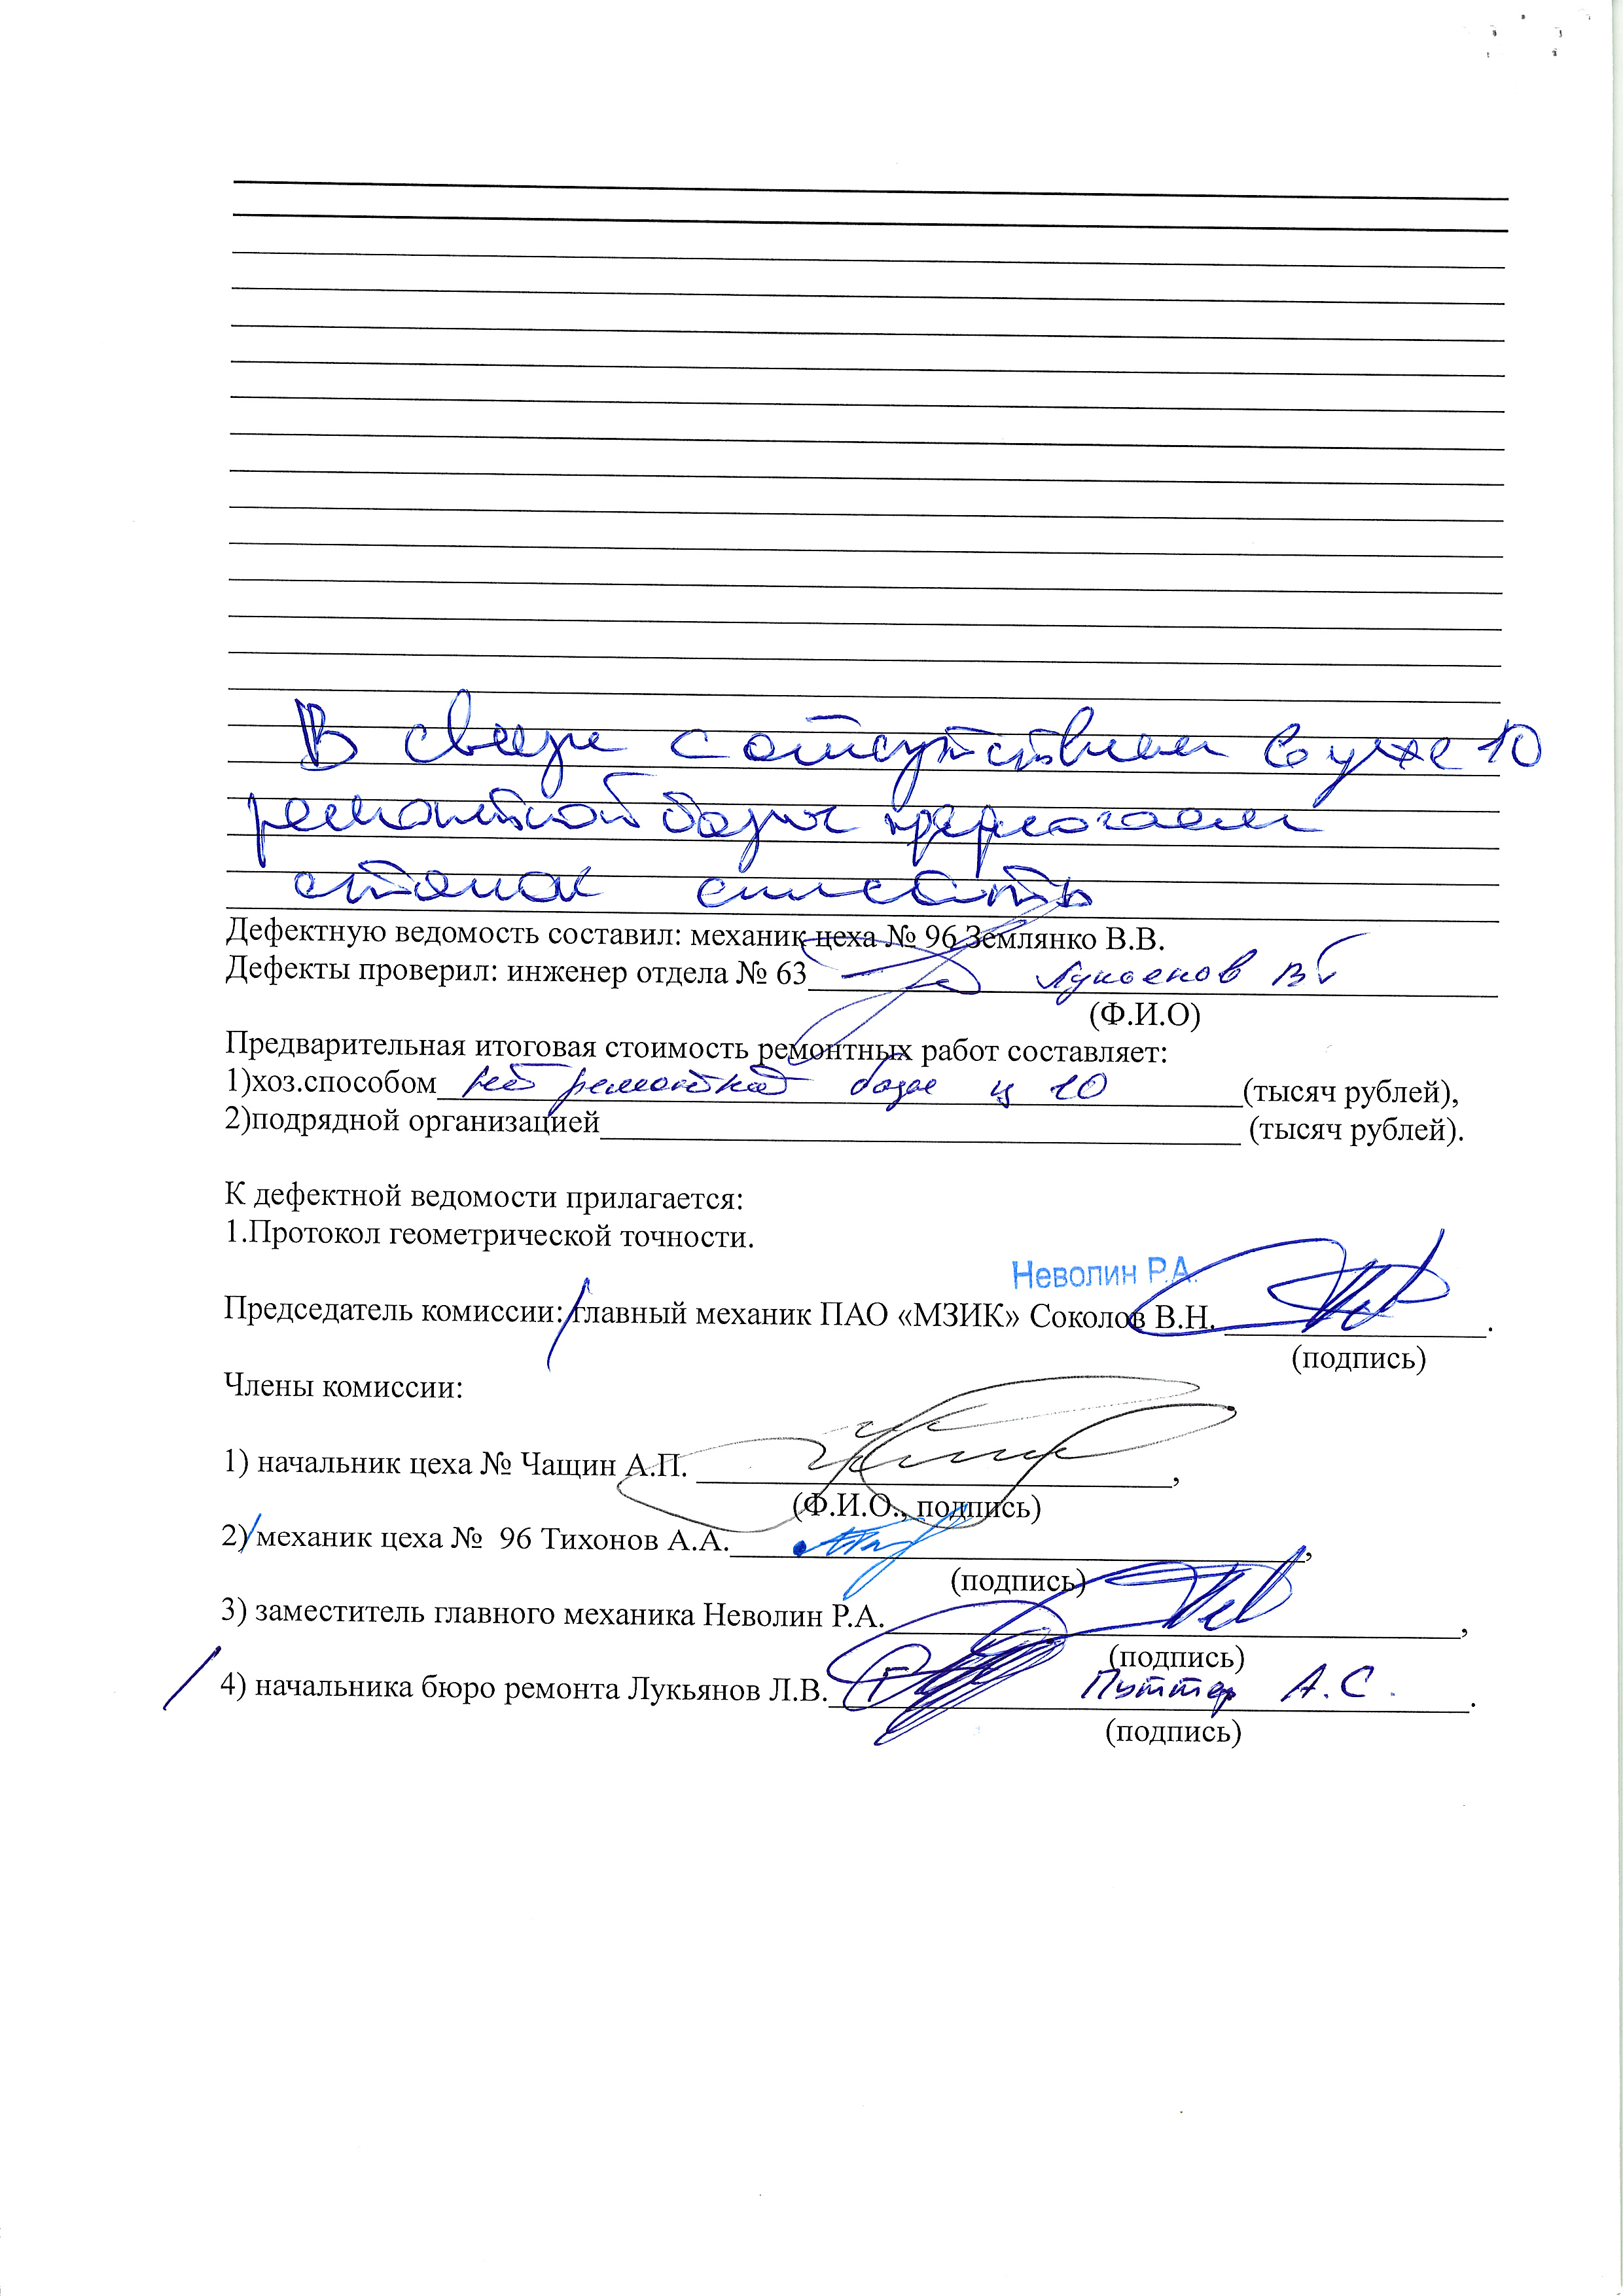 В связи с отсутствием в цехе 10
ремонтной базы предлогаем
станок списать
Дефектную ведомость составил: механик цеха № 96 Землянко В.В.
Дефекты проверил: инженер отдела № 63 Лукоенов В
(Ф.И.О)
Предварительная итоговая стоимость ремонтных работ составляет:
1)хоз.способом нет ремонтной базы ц 10 (тысяч рублей),
2)подрядной организацией (тысяч рублей).
К дефектной ведомости прилагается:
1.Протокол геометрической точности.
Неволин Р.А.
Председатель комиссии: главный механик ПАО «МЗИК» Соколов В.Н. .
(подпись)
Члены комиссии:
1) начальник цеха № Чащин А.П. ,
(Ф.И.О., подпись)
2) механик цеха № 96 Тихонов А.А. ,
(подпись)
3) заместитель главного механика Неволин Р.А. ,
(подпись)
4) начальника бюро ремонта Лукьянов Л.В. Путтер А.С. .
(подпись)